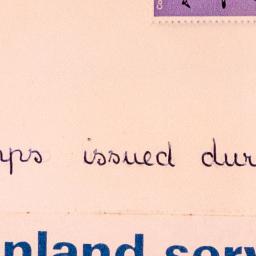 8
mps issued dur
inland serv